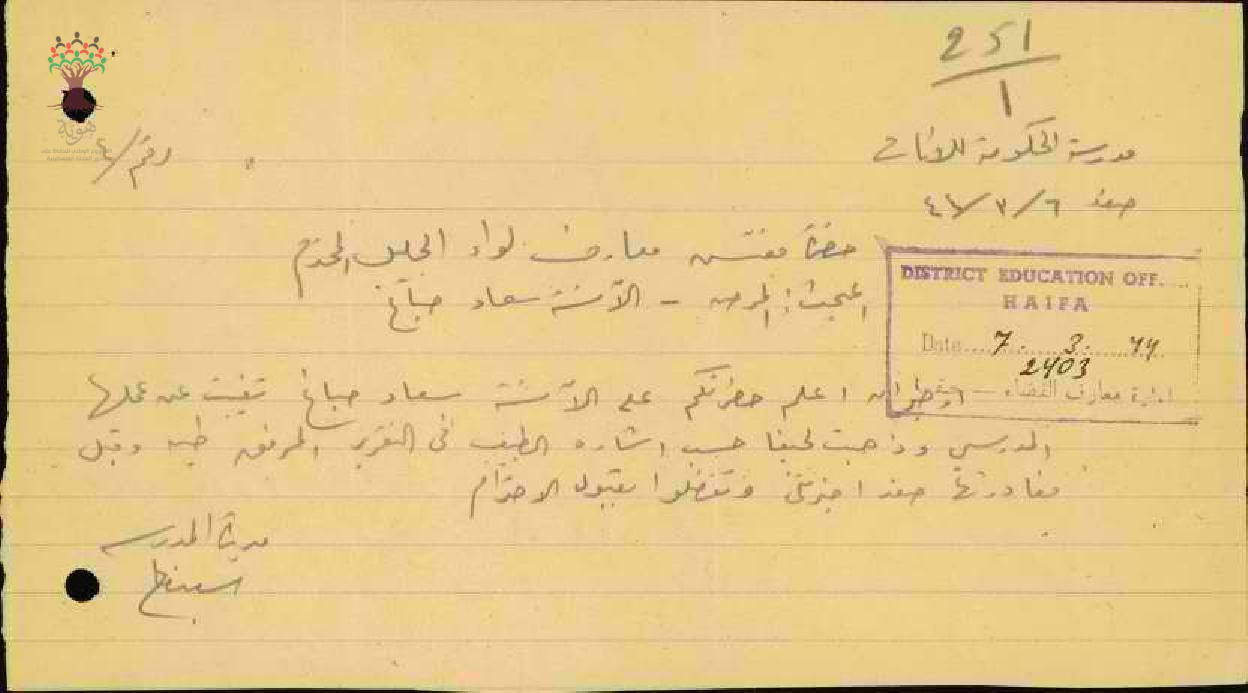 251
1
هوية
رقم / ٤
مدرسة الحكومة للاناث
صفد ٦ / ٣ / ٤٤
حضرة مفتش معارف لواء الجليل المحترم
المبحث: المرض - الآنسة سعاد صباغ
DISTRICT EDUCATION OFF.
HAIFA
Date 7. 3. 44
2403
ادارة معارف القضاء
اعلم حضرتكم على الآنسة سعاد صباغ تغيبت عن عملها
المدرسي وذهبت لحيفا حسب اشارة الطبيب في التقرير المرفق طيه وقبل
مغادرتها صفد اخبرتني وتفضلوا بقبول الاحترام
مديرة المدرسة